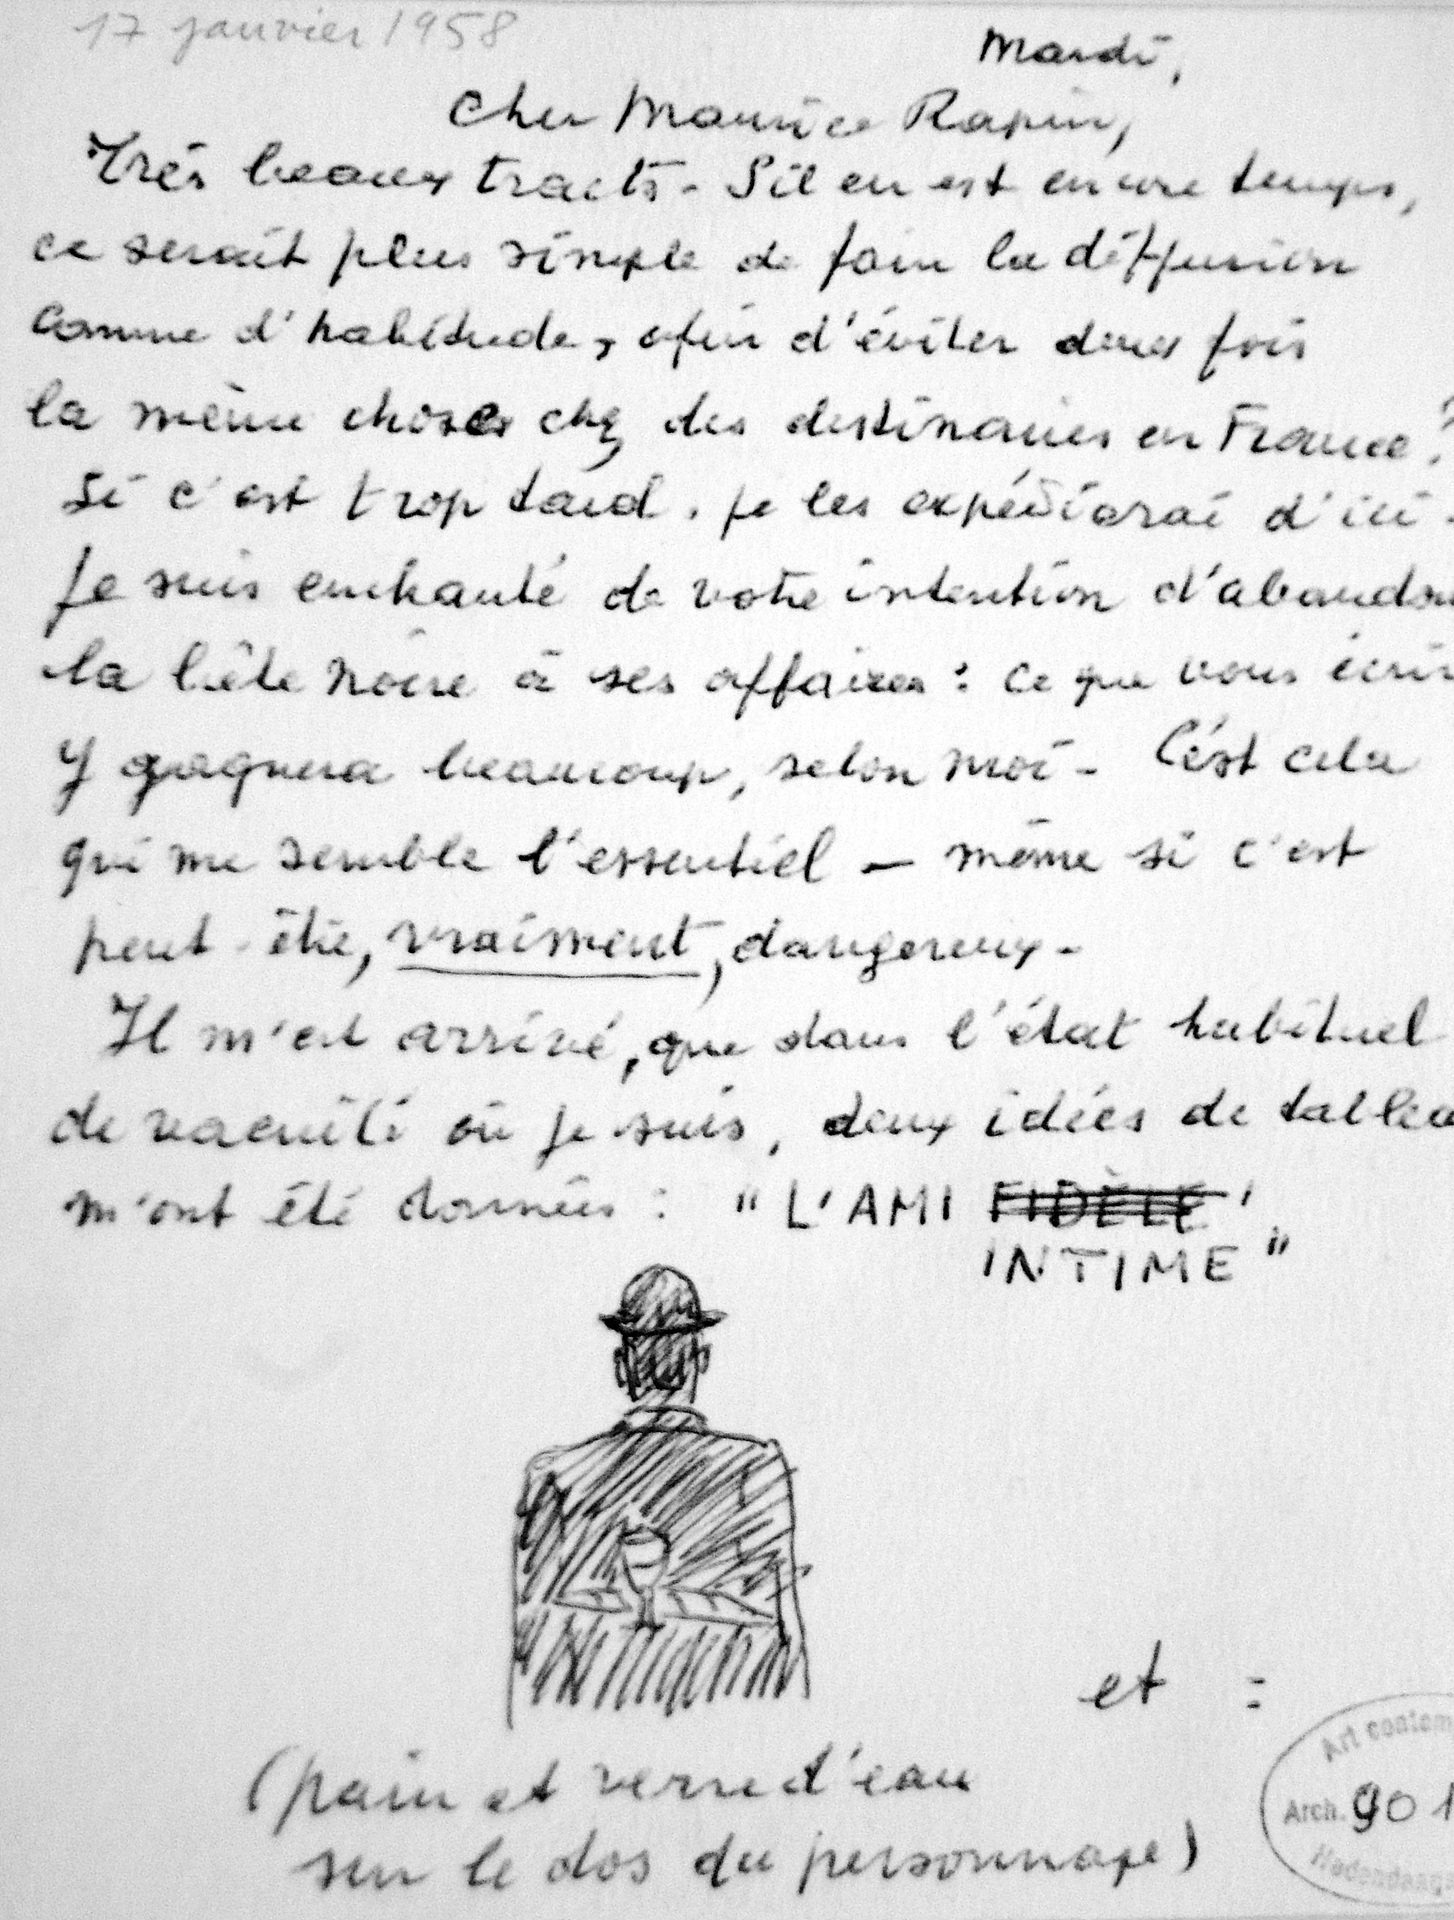 17 janvier 1958
Mardi,
Cher Maurice Rapin,
Très beaux tracts - S'il en est encore temps,
ce serait plus simple de faire la diffusion
comme d'habitude, afin d'éviter deux fois
la même chose chez des destinaires en France ?
Si c'est trop tard, je les expédierai d'ici -
Je suis enchanté de votre intention d'abandon
la bête noire à ses affaires : ce que vous écri
y gagnera beaucoup, selon moi - C'est cela
qui me semble l'essentiel — même si c'est
peut-être, vraiment, dangereux -
Il m'est arrivé, que dans l'état habituel
de vacuité où je suis, deux idées de tablea
m'ont été données : "L'AMI FIDÈLE
INTIME"
et :
(pain et verre d'eau
sur le dos du personnage)
Art contem
Arch. 901
Hedendaags